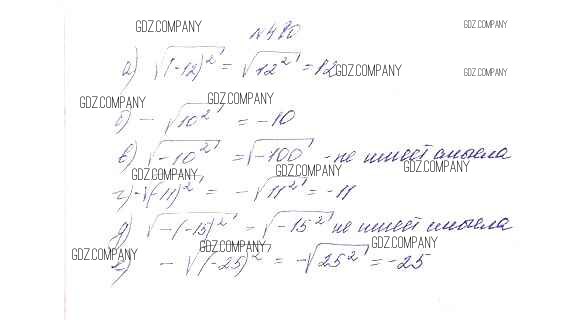 GDZ.COMPANY №490 GDZ.COMPANY
а) √(-12)² = √12² = 12 GDZ.COMPANY GDZ.COMPANY
GDZ.COMPANY GDZ.COMPANY
б) - √10² = -10
в) √-10² = √-100 - не имеет смысла
GDZ.COMPANY GDZ.COMPANY GDZ.COMPANY
г) -√(-11)² = -√11² = -11
д) √-(-15)² = √-15² не имеет смысла
GDZ.COMPANY GDZ.COMPANY GDZ.COMPANY
е) - √(-25)² = -√25² = -25